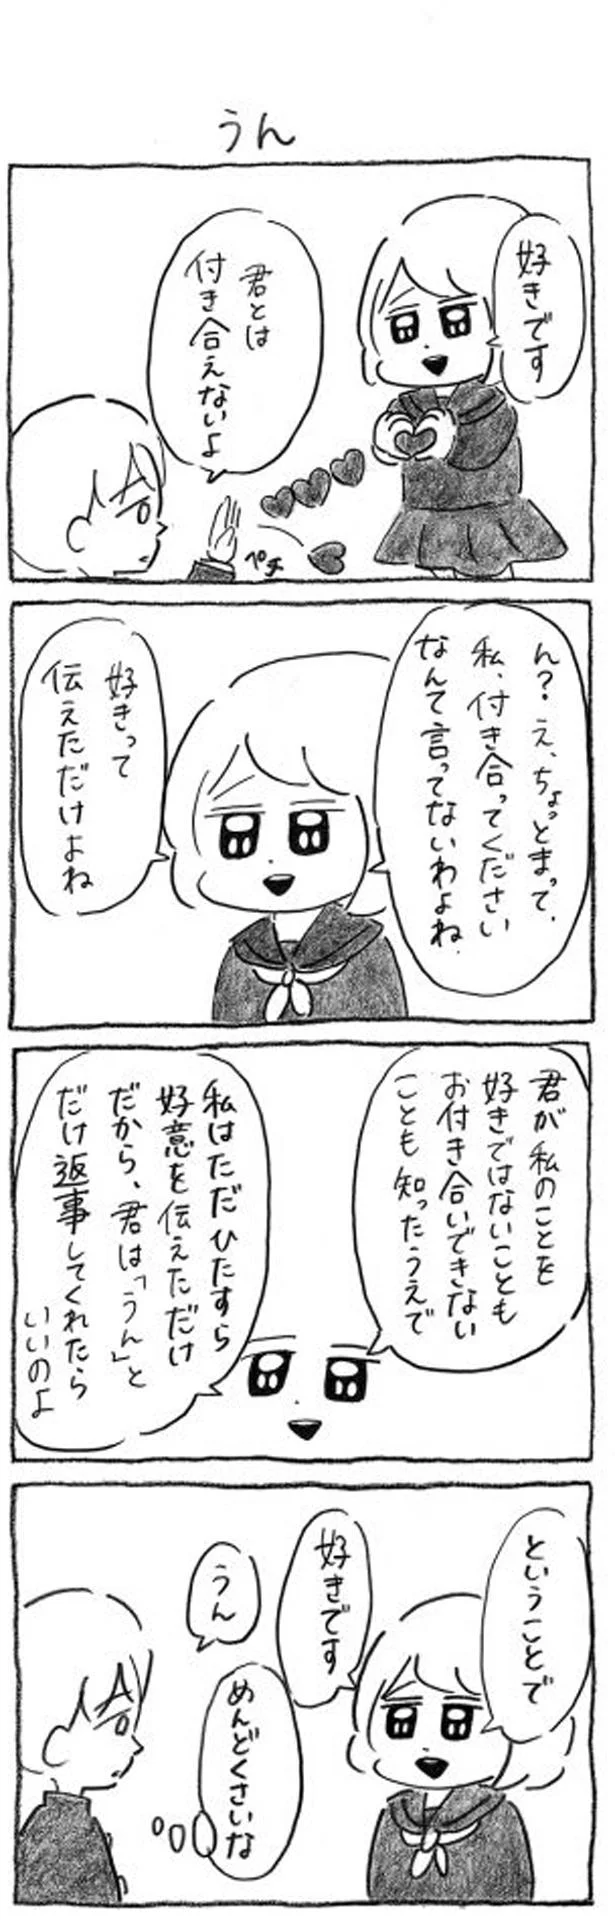 うん
好きです
君とは
付き合えないよ
ペチ
ん？え、ちょっとまって、
私、付き合ってください
なんて言ってないわよね
好きって
伝えただけよね
君が私のことを
好きではないことも
お付き合いできない
ことも知ったうえで
私はただひたすら
好意を伝えただけ
だから、君は「うん」と
だけ返事してくれたら
いいのよ
ということで
好きです
うん
めんどくさいな